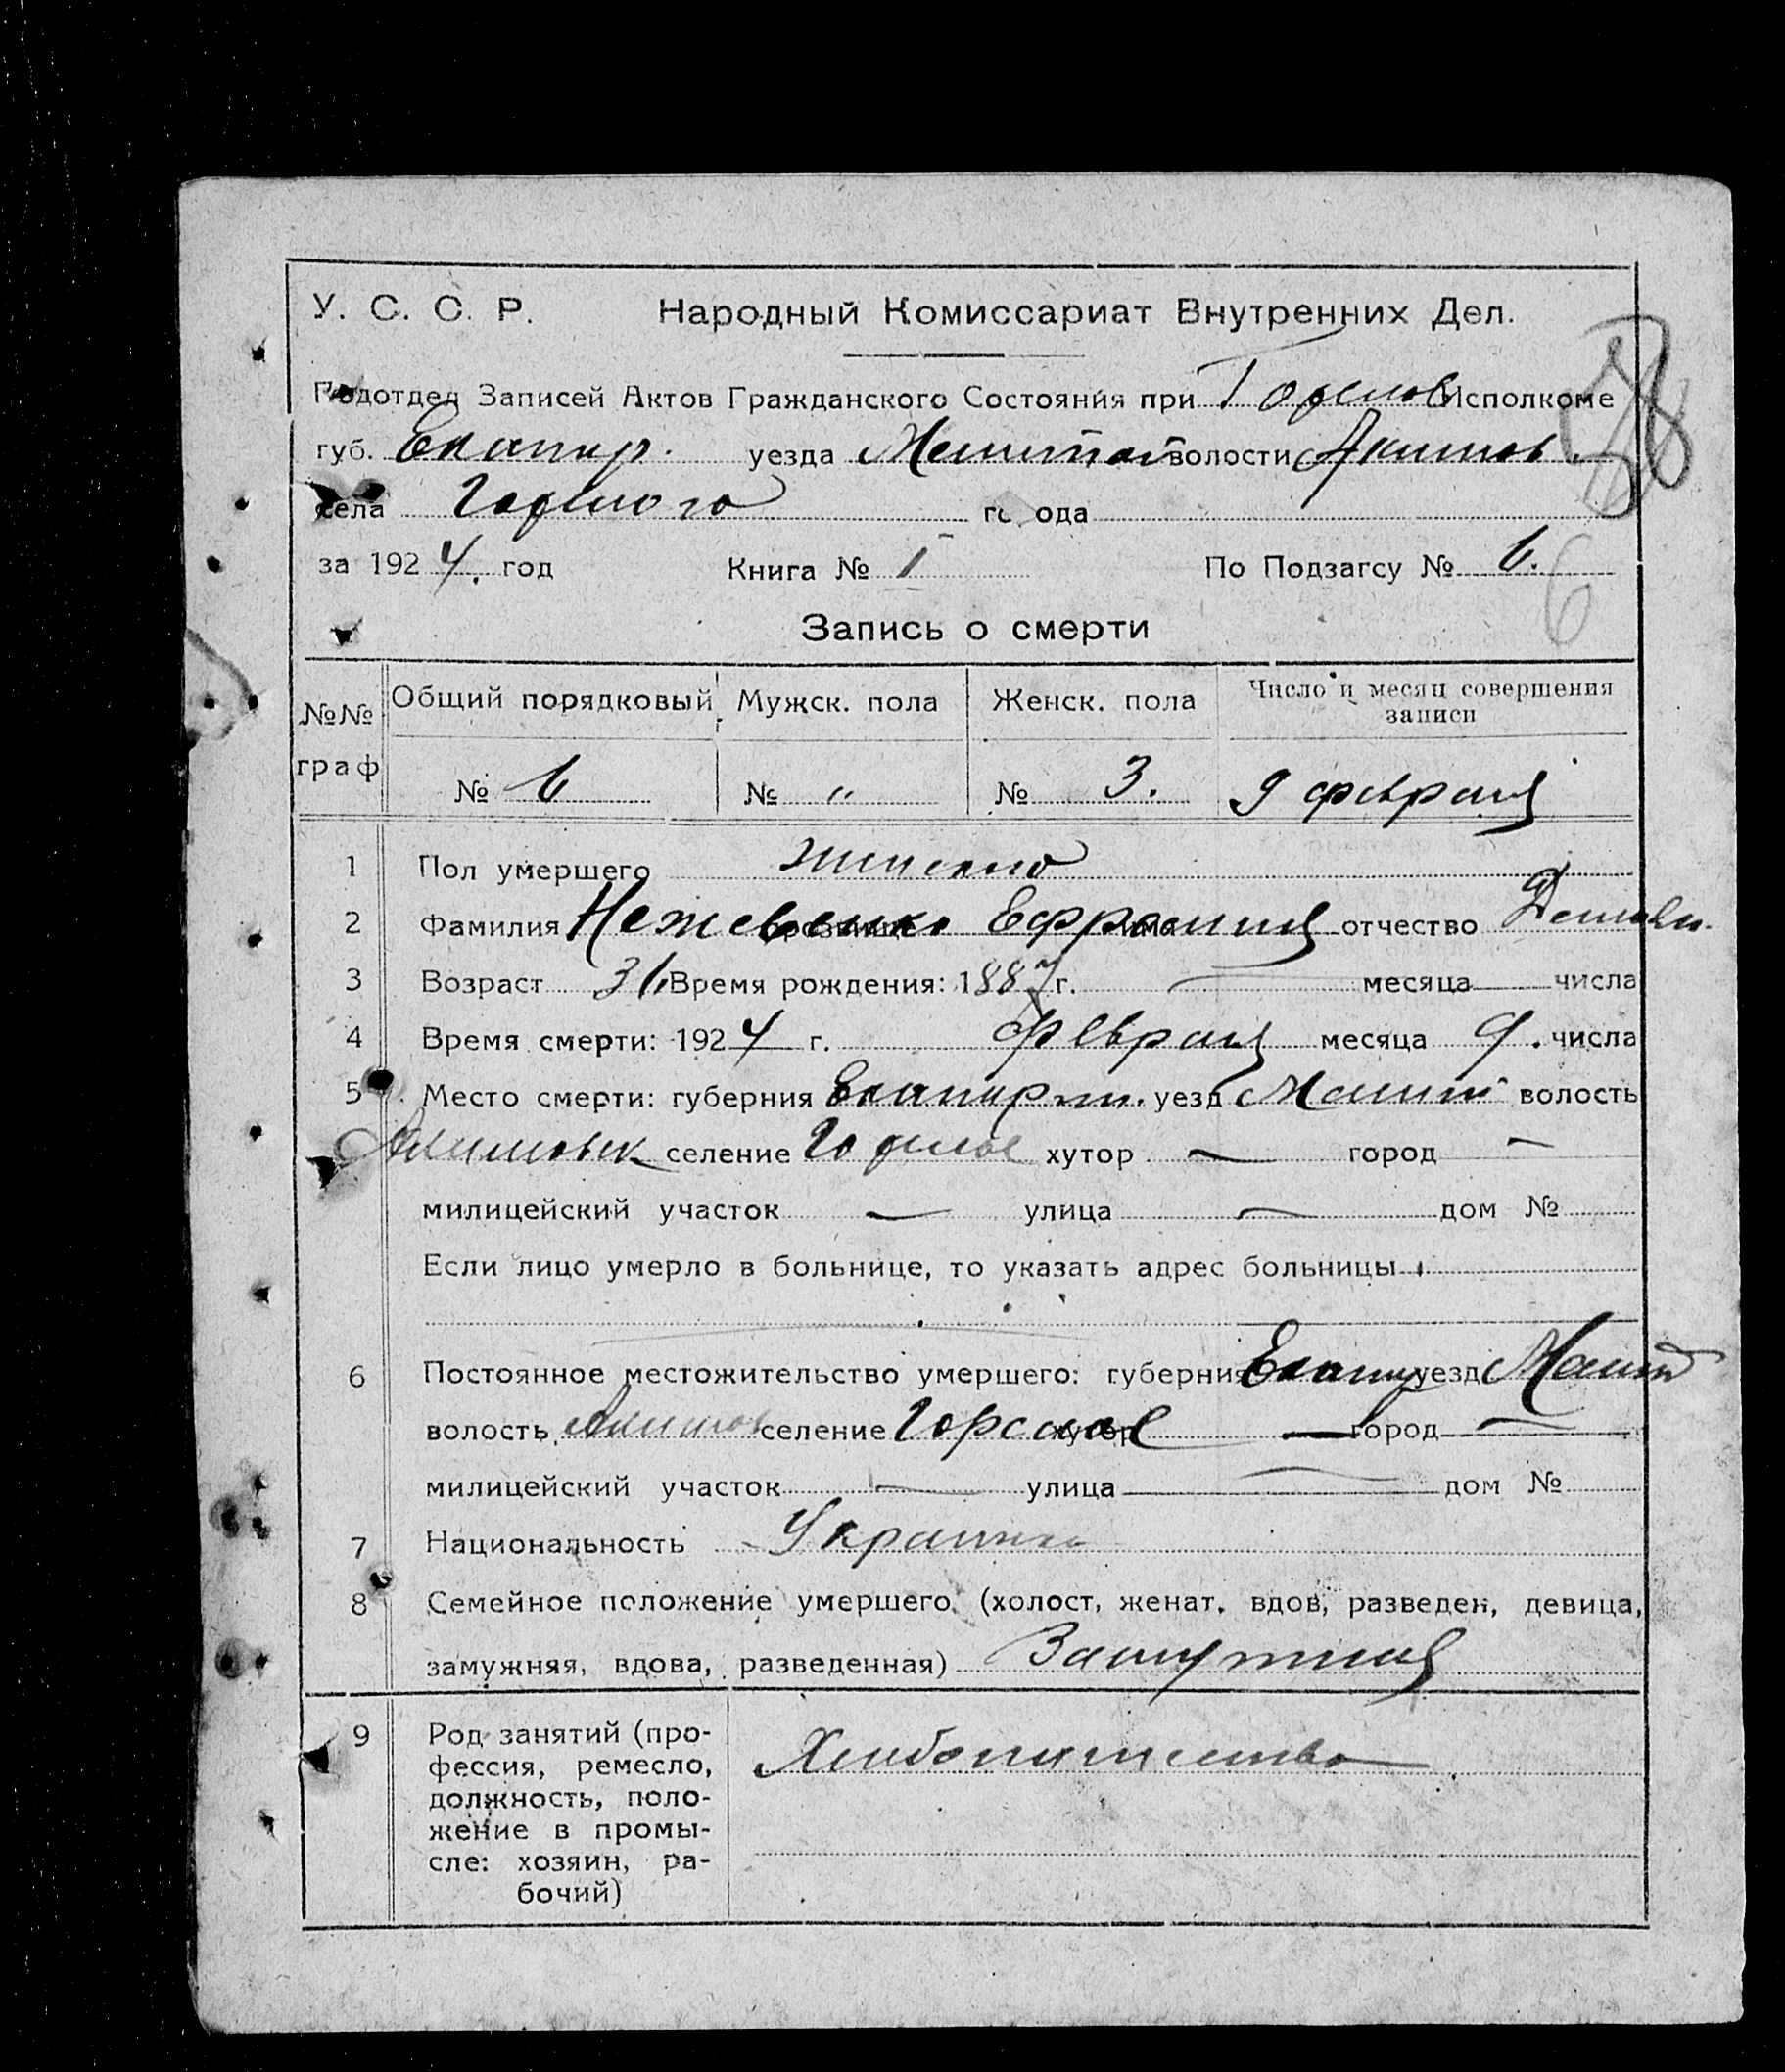 58
У. С. С. Р. Народный Комиссариат Внутренних Дел.
Подотдел Записей Актов Гражданского Состояния при Исполкоме
губ. Екатер. уезда Мелитоп волости Акимов.
села города
за 1924. год Книга № I По Подзагсу № 6.
6
Запись о смерти
№№ граф Общий порядковый Мужск. пола Женск. пола Число и месяц совершения записи
№ 6 № „ № 3. 9 февраля
1 Пол умершего женского
2 Фамилия прозвище имя отчество
3 Возраст 36 Время рождения: 1887 г. — месяца — числа
4 Время смерти: 1924 г. февраля месяца 9. числа
5 Место смерти: губерния уезд Мелит волость
Акимовск селение хутор — город —
милицейский участок — улица — дом №
Если лицо умерло в больнице, то указать адрес больницы
6 Постоянное местожительство умершего: губерния Екатер уезд Мелит
волость Акимов селение Горелое хутор — город —
милицейский участок — улица — дом №
7 Национальность
8 Семейное положение умершего (холост, женат, вдов, разведен, девица,
замужняя, вдова, разведенная) Замужняя
9 Род занятий (про-
фессия, ремесло,
должность, поло-
жение в промы-
сле: хозяин, ра-
бочий)
Хлебопашество